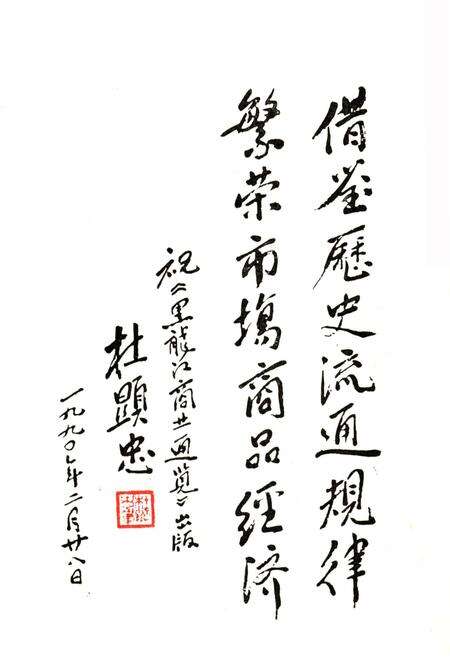 借鉴歷史流通規律
繁荣市場商品経济
祝《黑龍江商业通览》出版
杜顕忠
一九九〇年二月廿八日